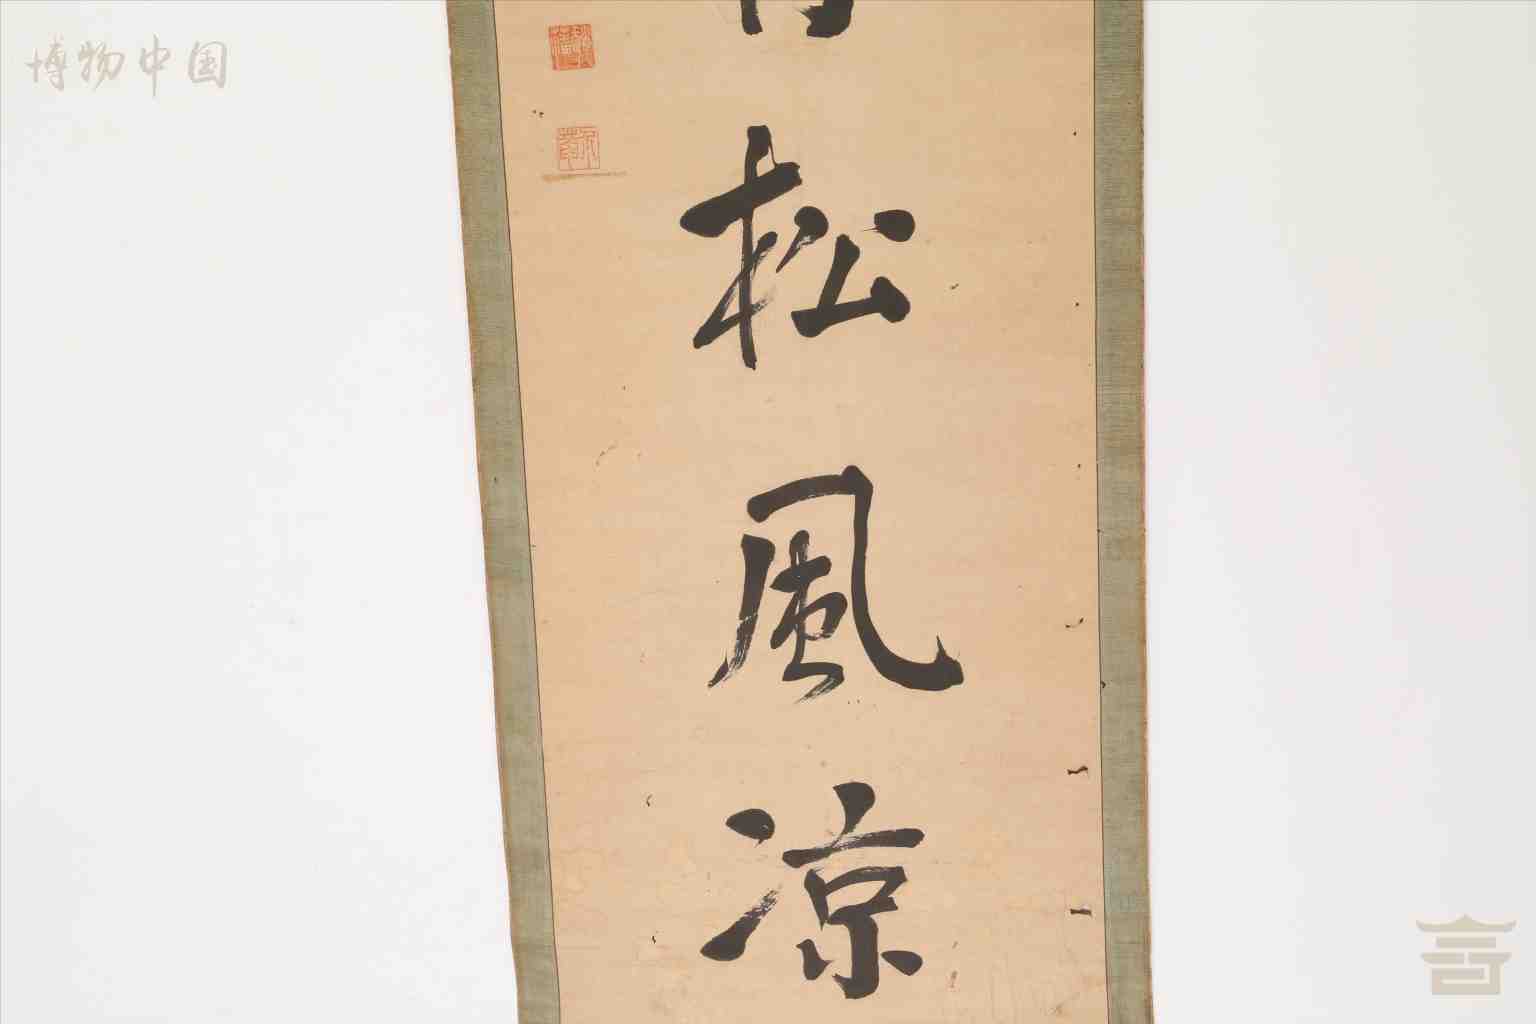 博物中国
松風凉